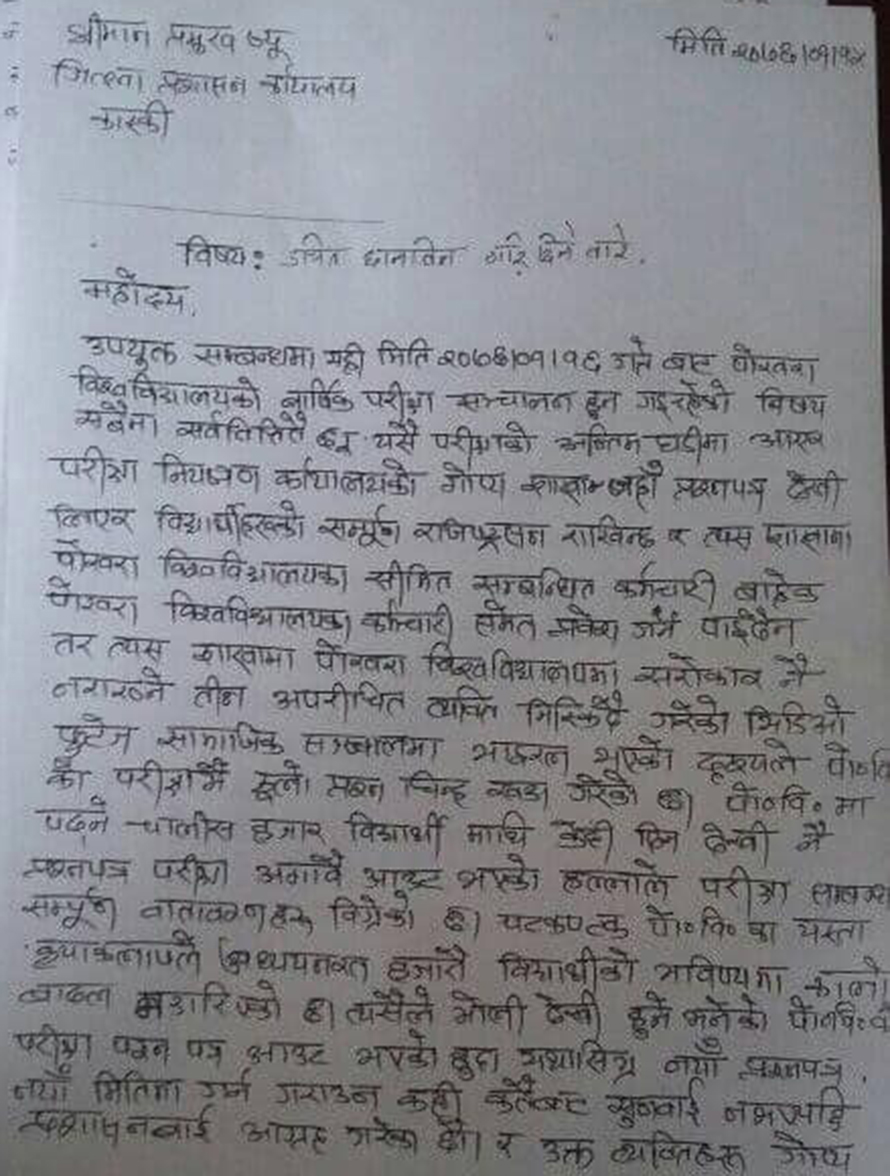 श्रीमान प्रमुख ज्यू
मिति २०७६।०९।१५
जिल्ला प्रशासन कार्यालय
कास्की
विषय: उचित छानविन गरि दिने बारे.
महोदय,
उपयुक्त सम्बन्धमा यही मिति २०७६।०९।१६ गते बाट पोखरा
विश्वविद्यालयको बार्षिक परीक्षा सञ्चालन हुन गइरहेको विषय
सबैमा सर्वविदितै छ। यसै परीक्षाको अन्तिम घडीमा आएर
परीक्षा नियन्त्रण कार्यालयको गोप्य शाखा जहाँ प्रश्नपत्र देखी
लिएर विद्यार्थीहरुको सम्पूर्ण राखिन्छ र त्यस शाखामा
पोखरा विश्वविद्यालयका सीमित सम्बन्धित कर्मचारी बाहेक
पोखरा विश्वविद्यालयका कर्मचारी समेत प्रवेश गर्न पाईदैन
तर त्यस शाखामा पोखरा विश्वविद्यालयमा सरोकार नै
नराख्ने तीन अपरीचित व्यक्ति निस्किदै गरेको भिडिओ
फुटेज सामाजिक सञ्जालमा भाइरल भएको दृश्यले पो०वि
को परीक्षामै ठूलो प्रश्न चिन्ह खडा गरेको छ। पो०वि० मा
पढ्ने चालीस हजार विद्यार्थी माथि केही दिन देखी नै
प्रश्नपत्र परीक्षा अगावै आउट भएको हल्लाले परीक्षा
सम्पूर्ण वातावरणहरु विग्रेको छ। पटकपटक पो०वि० का यस्ता
क्रृयाकलापले अध्ययनरत हजारौ विद्यार्थीको भविष्यमा कालो
बादल मडारिएको छ। त्यसैले भोली देखी हुने भनेको पो०वि०
परीक्षा प्रश्न पत्र आउट भएको हुदा नयाँ प्रश्नपत्र,
नयाँ मितिमा गर्न गराउन कही कतैबाट सुनवाई नभएपछि
प्रशासनलाई आग्रह गरेका छौ। र उक्त व्यक्तिहरु गोप्य